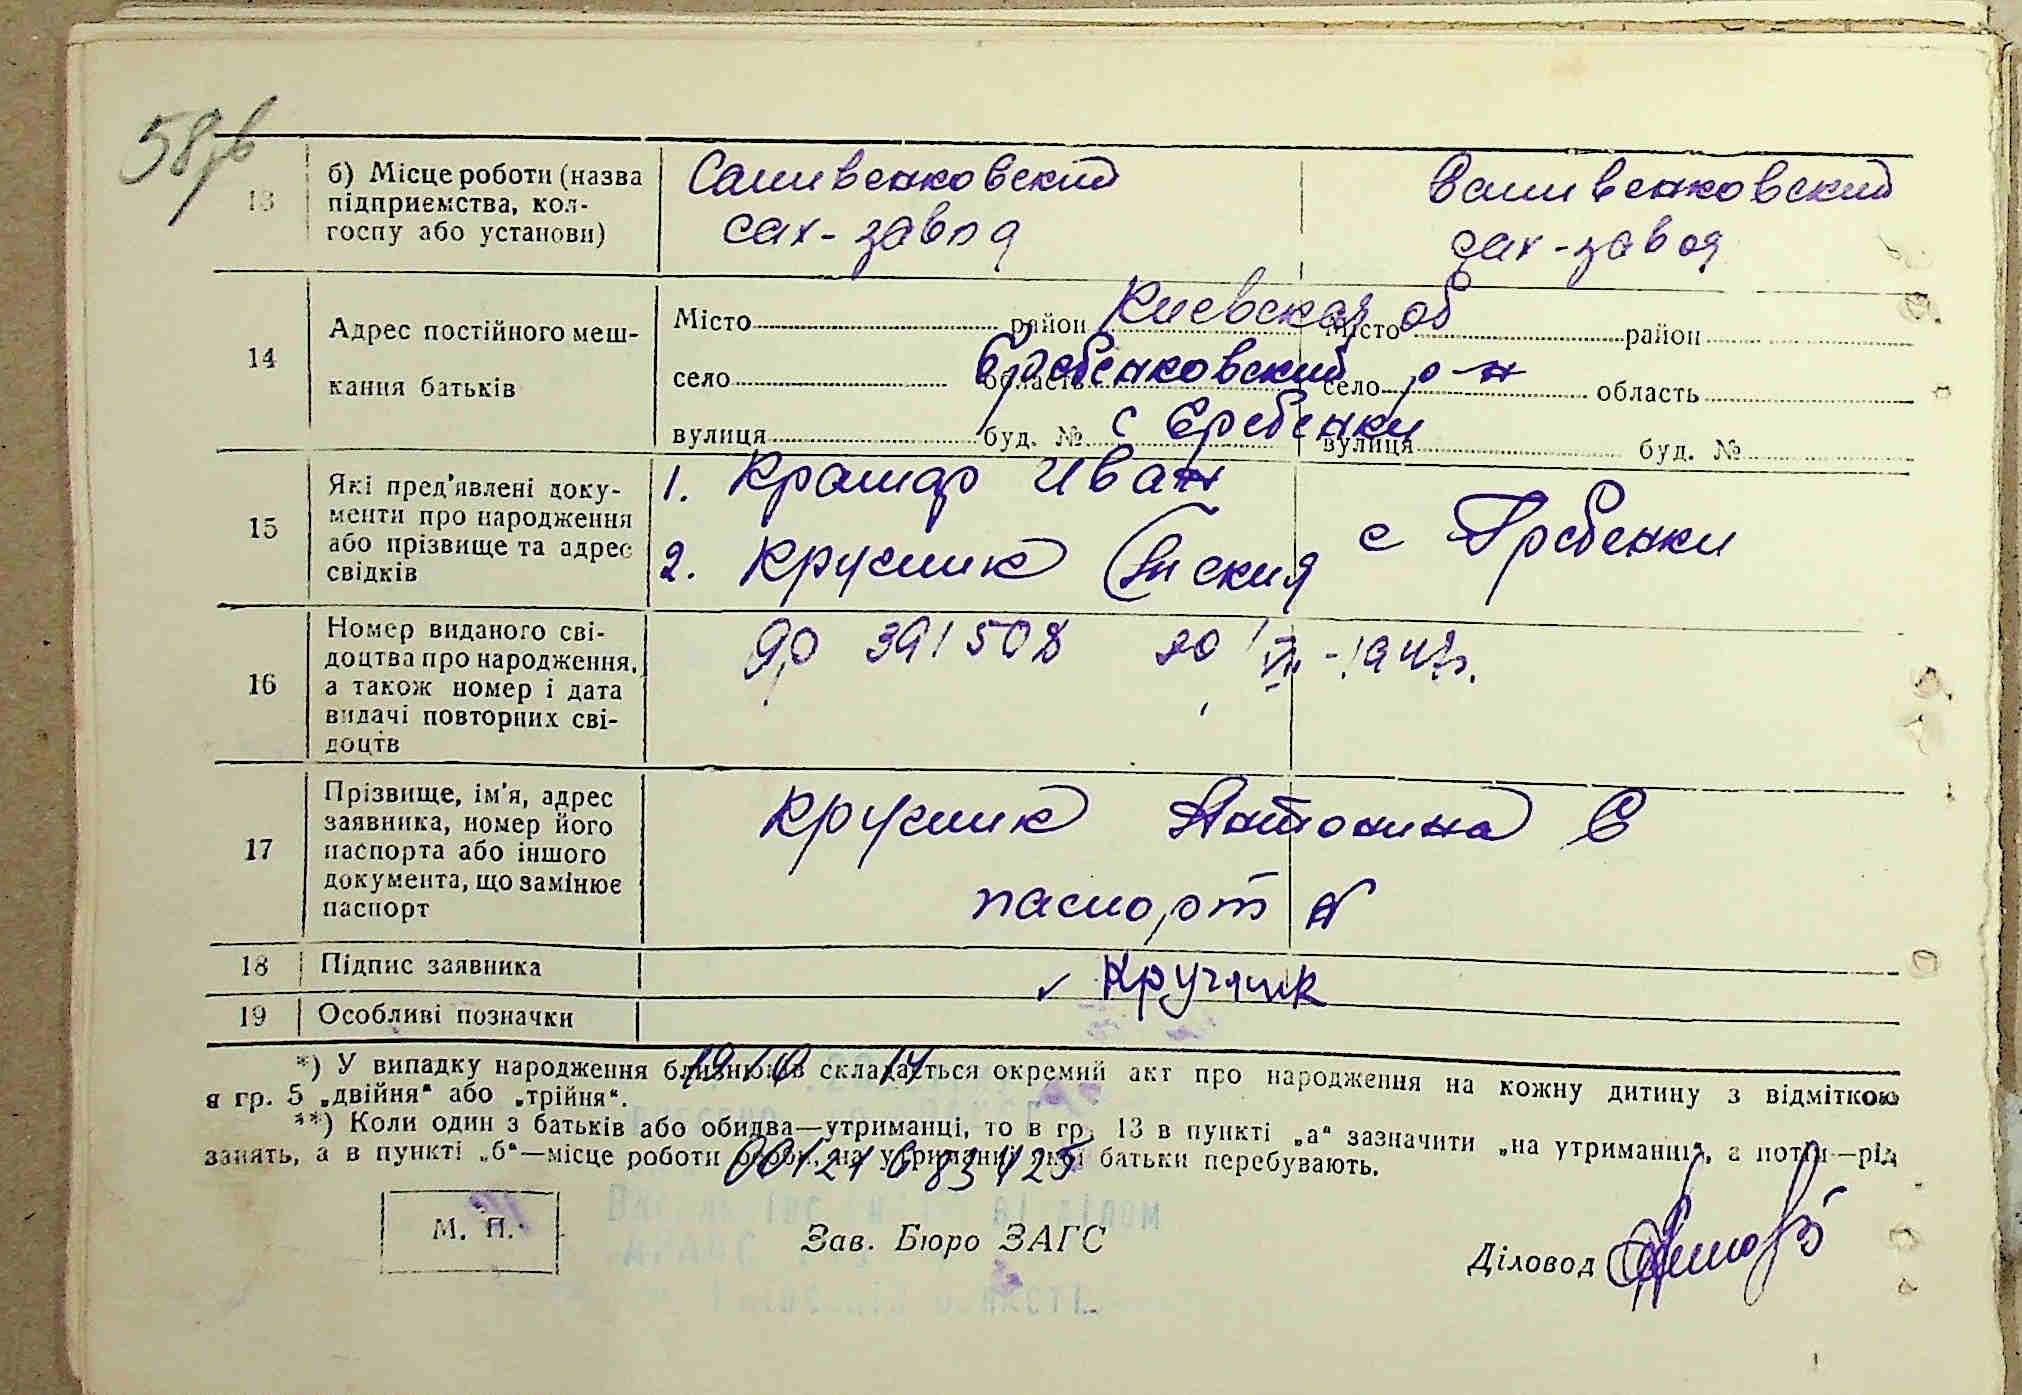 13 б) Місце роботи (назва підприємства, кол-госпу або установи)
Саливенковский
сах-завод
Саливенковский
сах-завод
14 Адрес постійного меш-
кання батьків
Місто район Киевская об Місто район
село область Гребенковский р-н село область
вулиця буд. № с Гребенки вулиця буд. №
15 Які пред'явлені доку-
менти про народження
або прізвище та адрес
свідків
1. Крамар Иван
2. Круглик с Гребенки
16 Номер виданого сві-
доцтва про народження,
а також номер і дата
видачі повторних сві-
доцтв
391508 20/VII-194
17 Прізвище, ім'я, адрес
заявника, номер його
паспорта або іншого
документа, що замінює
паспорт
Круглик Антонина Е
паспорт №
18 Підпис заявника Круглик
19 Особливі позначки
*) У випадку народження близнюків складається окремий акт про народження на кожну дитину з відміткою
в гр. 5 „двійня“ або „трійня“.
**) Коли один з батьків або обидва—утриманці, то в гр. 13 в пункті „а“ зазначити „на утриманні“, а потім—рід
занять, а в пункті „б“—місце роботи особи, на утриманні якої батьки перебувають.
00121683425
М. П.
Зав. Бюро ЗАГС
Діловод